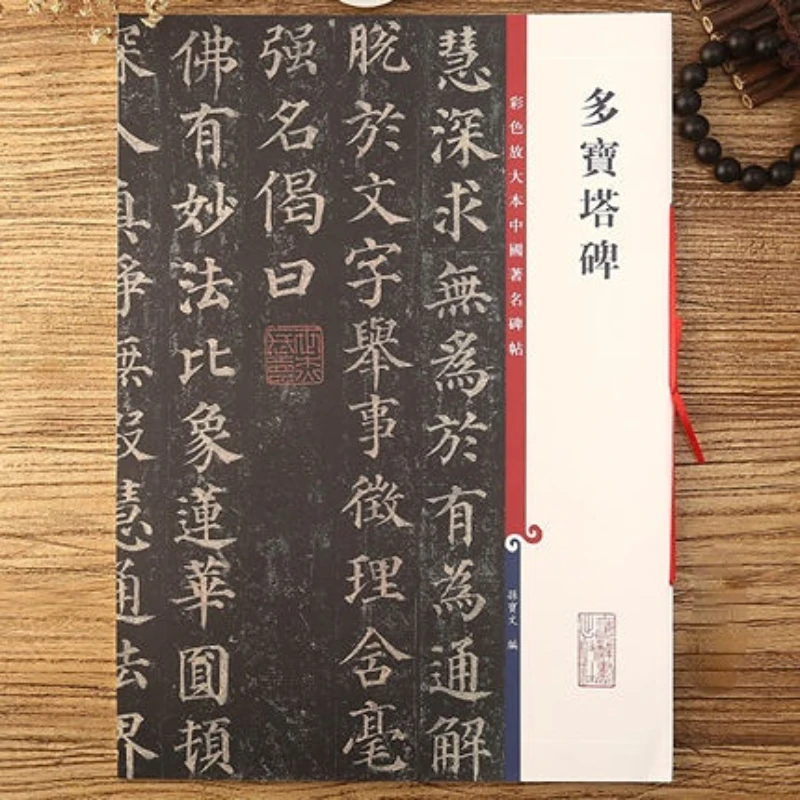 多寶塔碑
彩色放大本中國著名碑帖
孫寶文 編
慧深求無為於有為通解
脫於文字舉事徵理含毫
强名偈曰
佛有妙法比象蓮華圓頓
深入真淨無段慧通法界